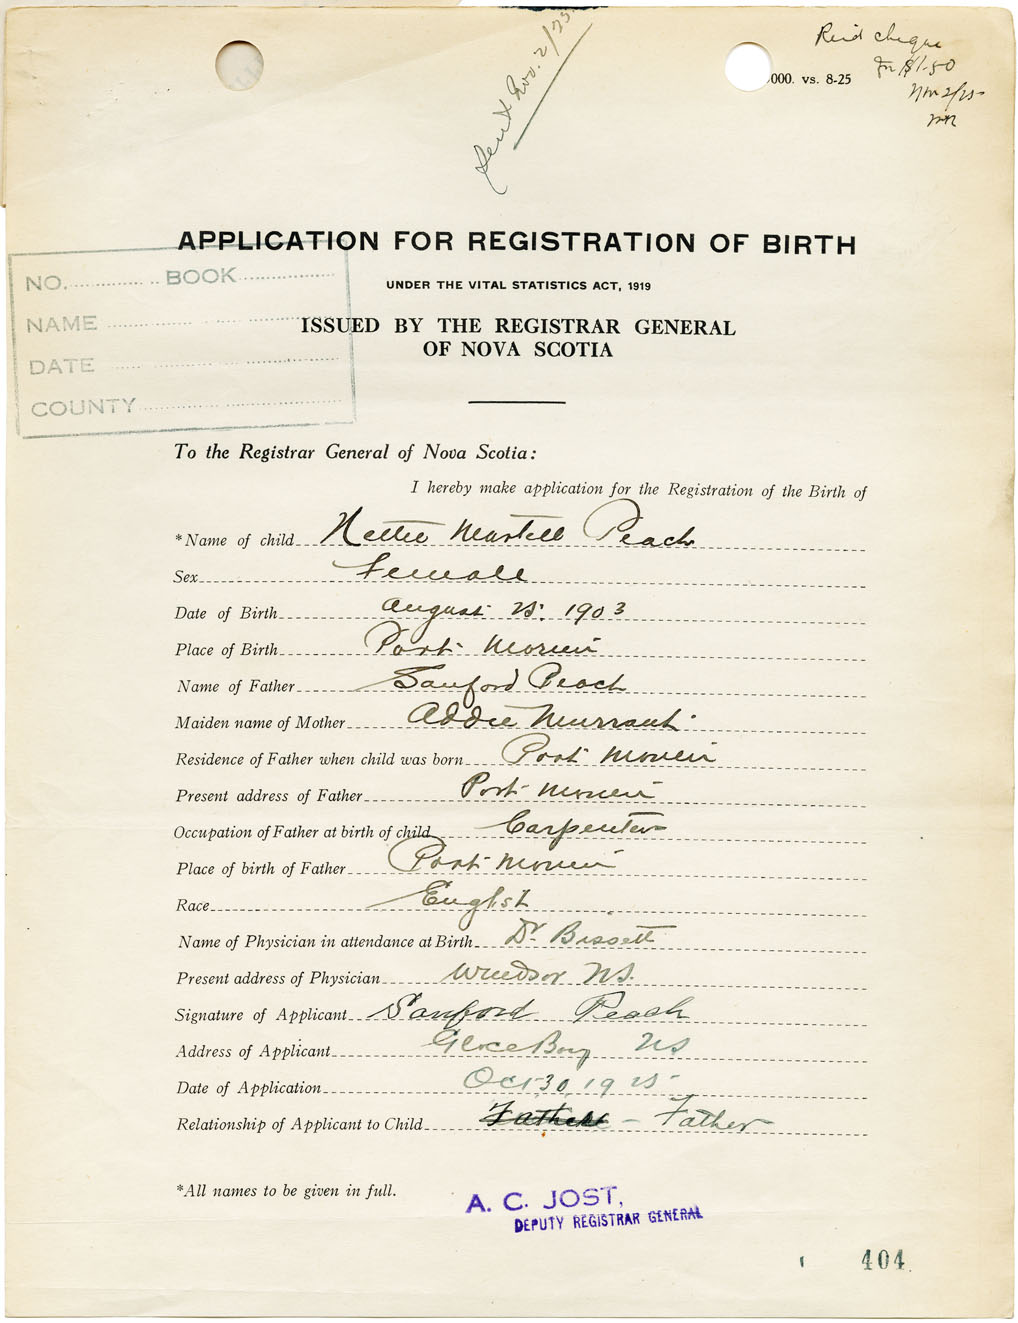 Sent Nov. 2/25
Recd cheque
for $1.50
Nov 2/25
000. vs. 8-25
APPLICATION FOR REGISTRATION OF BIRTH
UNDER THE VITAL STATISTICS ACT, 1919
ISSUED BY THE REGISTRAR GENERAL
OF NOVA SCOTIA
NO. BOOK
NAME
DATE
COUNTY
To the Registrar General of Nova Scotia:
I hereby make application for the Registration of the Birth of
*Name of child Nettie Martell Peach
Sex Female
Date of Birth August 25. 1903
Place of Birth Port Morien
Name of Father Sanford Peach
Maiden name of Mother Addie Murrant
Residence of Father when child was born Port Morien
Present address of Father Port Morien
Occupation of Father at birth of child Carpenter
Place of birth of Father Port Morien
Race English
Name of Physician in attendance at Birth Dr Bissett
Present address of Physician Windsor NS.
Signature of Applicant Sanford Peach
Address of Applicant Glace Bay NS
Date of Application Oct 30, 1925
Relationship of Applicant to Child - Father
*All names to be given in full.
A. C. JOST,
DEPUTY REGISTRAR GENERAL
404